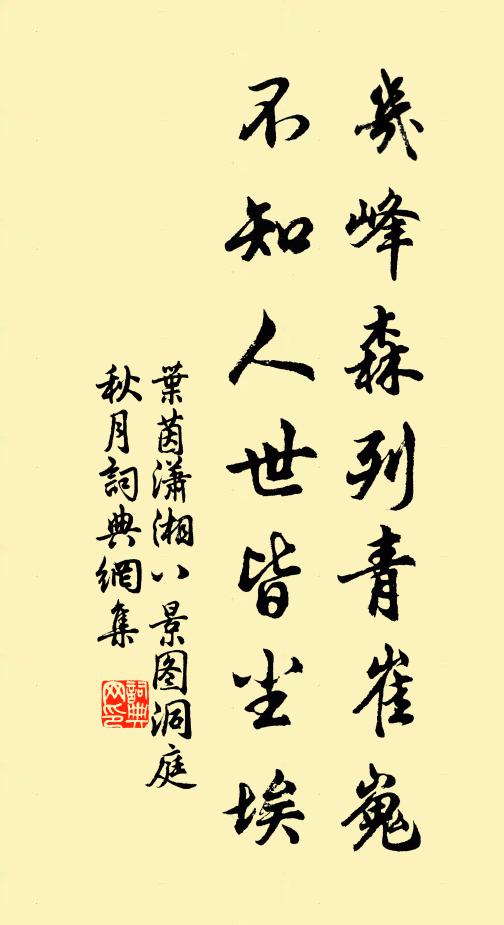 幾峰森列青崔嵬
不知人世皆尘埃
葉茵瀟湘八景图洞庭
秋月詞典網集
詞典
网印